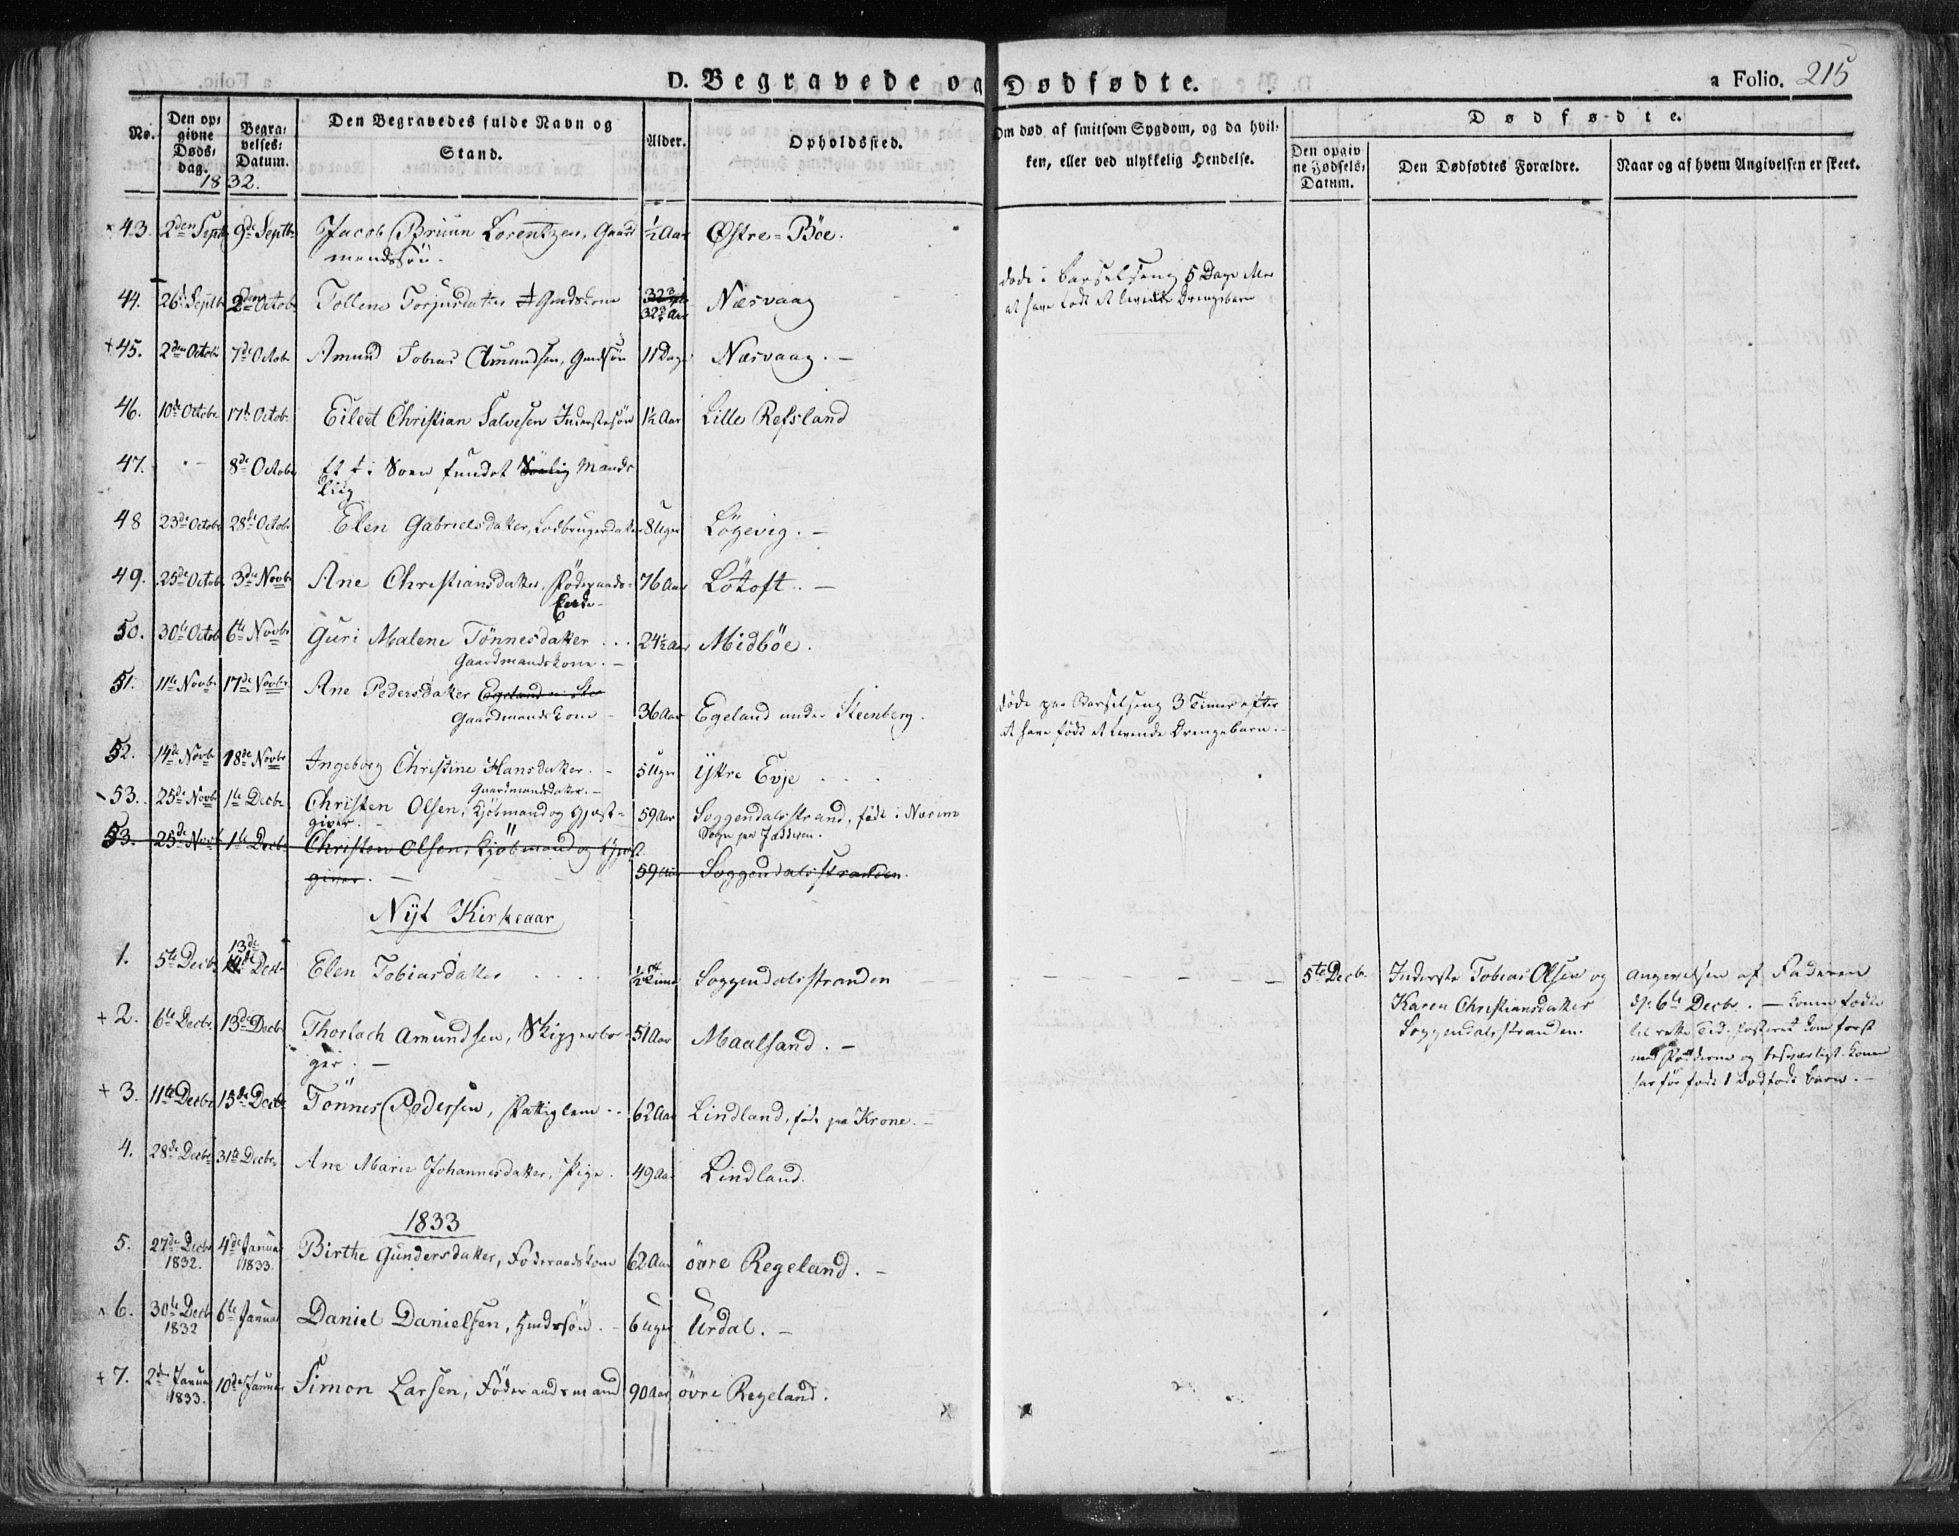 D. Begravede og Dødfødte.
a Folio. 215
No. Den opgivne Dødsdag. Begravelses-Datum. Den Begravedes fulde Navn og Stand. Alder. Opholdssted. Om død af smitsom Sygdom, og da hvilken, eller ved ulykkelig Hendelse. Dødfødte.
Den opgivne Fødsels-Datum. Den Dødfødtes Forældre. Naar og af hvem Angivelsen er skeet.
1832.
43. 2den Septb 9de Septb. Jacob Bruun Lorentzen, Gaard ½ Aar Østre-Böe.
mandssön.
44. 26 Septb 2den Octob. Tollene Torjusdatter Gmdskone 32 Aar Næsvaag döde i barselseng 5 Dage efter
at have födt et levende Drengebarn
+ 45. 2den Octob 7de Octob Amund Tobias Amundsen, Gmdsön 11 Dage Næsvaag. —
46. 10de Octob. 17de Octob. Eilert Christian Salvesen Inderstesön 1½ Aar Lille Refsland
47. - 8de Octob. Et i Soen fundet Mands
Liig
48 23de Octob 28de Octob Elen Gabrielsdatter, Lodbrugerdatter 8 Uger Lögevig. —
49. 25de Octob 3die Novb. Ane Christiansdatter, Födepaads- 76 Aar Lötoft. —
Enke
50. 30te Octob 6te Novb Guri Malene Tönnesdatter ... 24½ Aar Midböe.
Gaardmandskone. —
51. 11te Novb. 17de Novb. Ane Pedersdatter
Gaardmandskone 36 Aar Egeland under Steenberg. döde paa Barselseng 3 Timer efter
at have födt et levende Drengebarn. —
52. 14de Novb. 18de Novb. Ingeborg Christine Hansdatter. 5 Uger ÿstre Evje
Gaardmandsdatter. —
53. 25de Novb 1te Decb. Christen Olsen, Kjöbmand og Gjæst- 59 Aar Soggendalsstrand, födt i
giver. — Sogn paa Jædderen.
53. 25de Novb 1te Decb. Christen Olsen, Kjöbmand og Gjæst
giver. — 59 Aar Soggendalsstranden.
Nÿt Kirkeaar
1. 5te Decb. 13de Decb. Elen Tobiasdatter ½ Time Soggendalsstranden 5te Decb. Inderste Tobias Olsen og Angivelsen af Faderen
Karen Christiansdatter d: 6te Decb. — konen födte
Soggendalsstranden. til rette Tid; fosteret kom först
med Födderne og besværligt. konen
har för födt 1 dödfödt barn. —
+ 2. 6te Decb. 13de Decb. Thorlach Amundsen, Skipperbor- 51 Aar Maalsand. —
ger. —
+ 3. 11te Decb. 15de Decb. Tönnes Pedersen, Fattiglem .. 62 Aar Lindland, födt paa Krone. —
4. 28de Decb. 31te Decb. Ane Marie Johannesdatter, Pige. 49 Aar Lindland.
1833
5. 27de Decb. 1832. 4de Januar 1833. Birthe Gundersdatter, Föderaadskone 62 Aar övre Regeland. —
6. 30te Decb 1832 6te Januar Daniel Danielsen, Gmdssön. — 6 Uger Urdal. —
+ 7. 2den Januar 1833. 10de Januar Simon Larsen, Föderaadsmand 90 Aar övre Regeland.